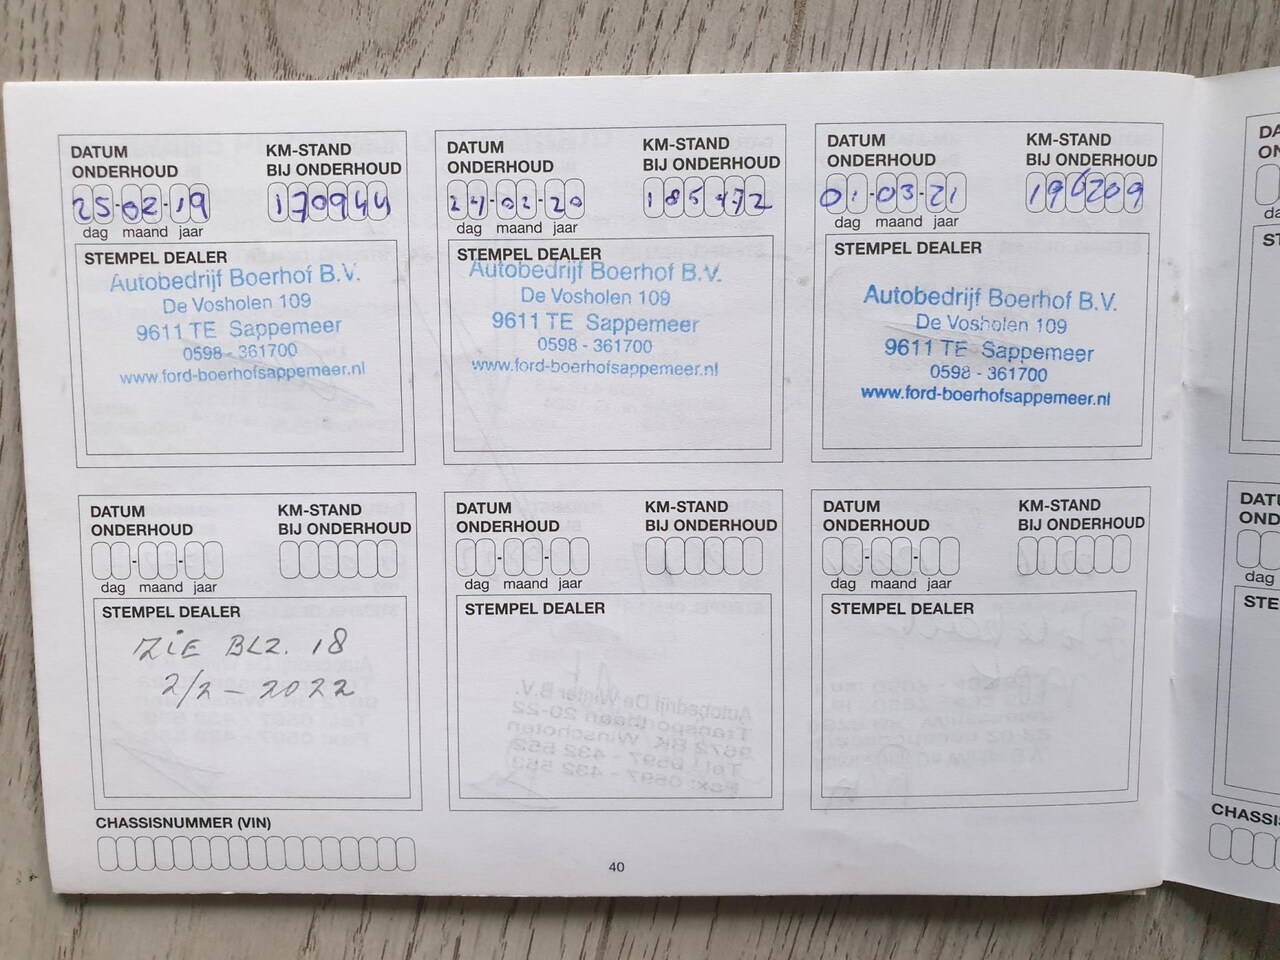 DATUM ONDERHOUD
KM-STAND BIJ ONDERHOUD
25-02-19
170944
dag maand jaar
STEMPEL DEALER
Autobedrijf Boerhof B.V.
De Vosholen 109
9611 TE Sappemeer
0598 - 361700
www.ford-boerhofsappemeer.nl
DATUM ONDERHOUD
KM-STAND BIJ ONDERHOUD
24-02-20
185472
dag maand jaar
STEMPEL DEALER
Autobedrijf Boerhof B.V.
De Vosholen 109
9611 TE Sappemeer
0598 - 361700
www.ford-boerhofsappemeer.nl
DATUM ONDERHOUD
KM-STAND BIJ ONDERHOUD
01-03-21
196209
dag maand jaar
STEMPEL DEALER
Autobedrijf Boerhof B.V.
De Vosholen 109
9611 TE Sappemeer
0598 - 361700
www.ford-boerhofsappemeer.nl
DATUM ONDERHOUD
KM-STAND BIJ ONDERHOUD
dag maand jaar
STEMPEL DEALER
ZIE BLZ. 18
2/2 - 2022
DATUM ONDERHOUD
KM-STAND BIJ ONDERHOUD
dag maand jaar
STEMPEL DEALER
DATUM ONDERHOUD
KM-STAND BIJ ONDERHOUD
dag maand jaar
STEMPEL DEALER
CHASSISNUMMER (VIN)
40